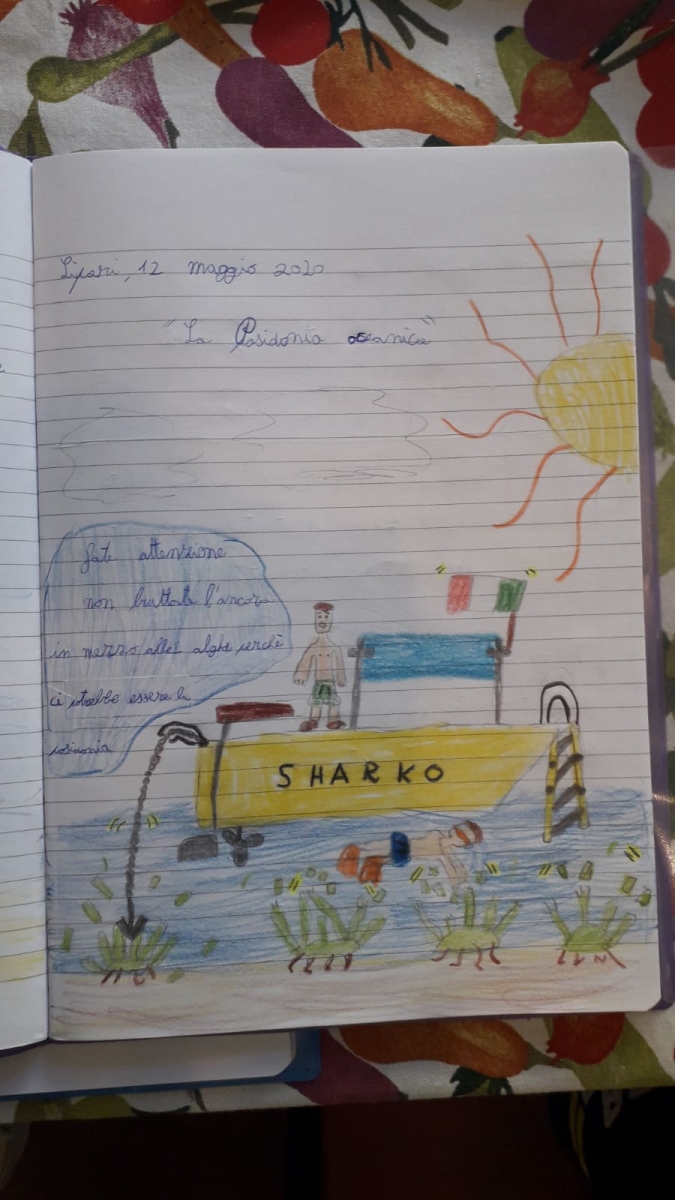 Lipari, 12 maggio 2020
"La Posidonia oceanica"
fate attenzione
non buttate l'ancora
in mezzo alle alghe perchè
ci potrebbe essere la
posidonia
SHARKO